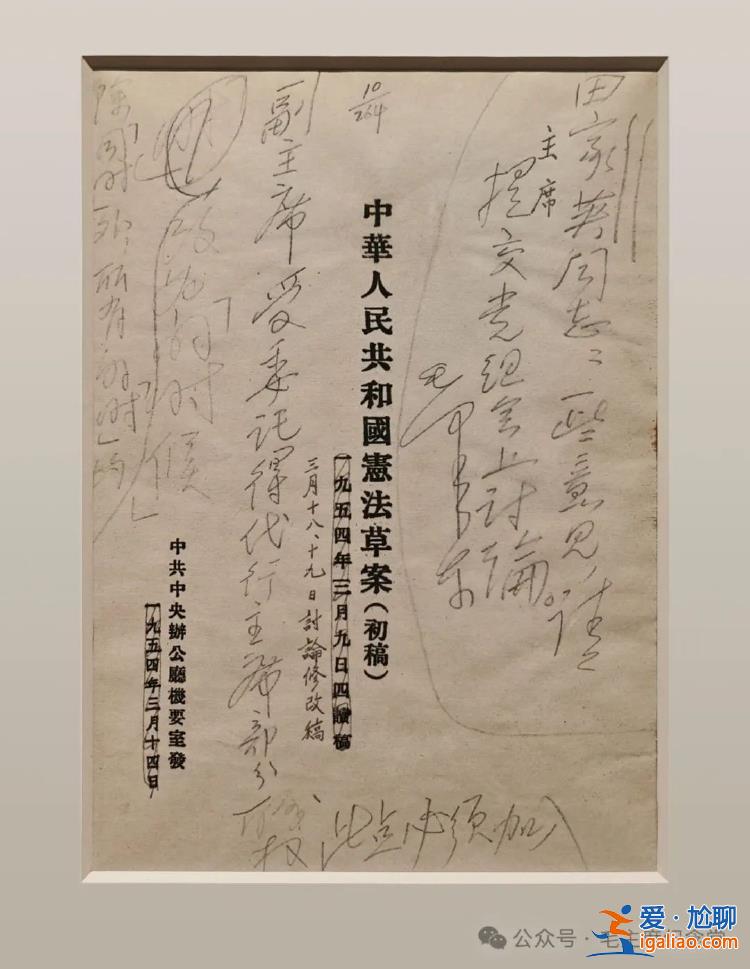 田家英同志：一些意见，请
主席
提交党组会上讨论。
毛泽东
10/264
中華人民共和國憲法草案（初稿）
一九五四年三月九日四讀稿
三月十八、十九日討論修改稿
副主席受委託得代行主席部分
职权
此点必须加入
改为“的时候
所有
中共中央辦公廳機要室發
一九五四年三月十四日
公众号·毛主席纪念堂
爱·尬聊
igaliao.com